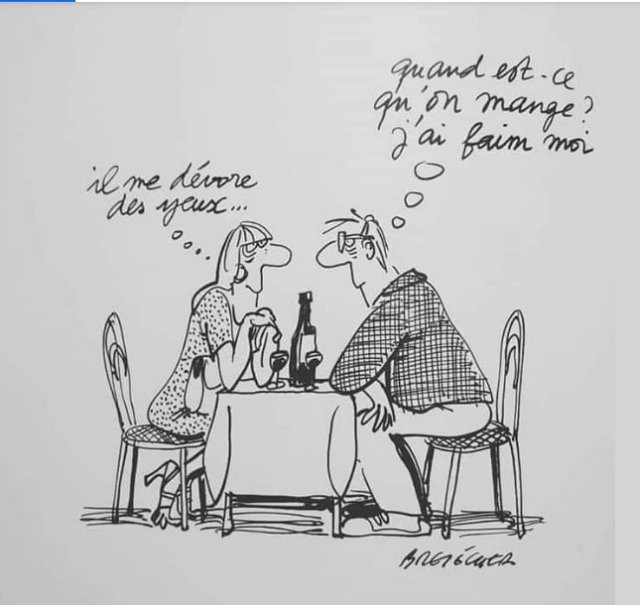 il me dévore
des yeux...
quand est-ce
qu'on mange?
j'ai faim moi
BRETÉCHER